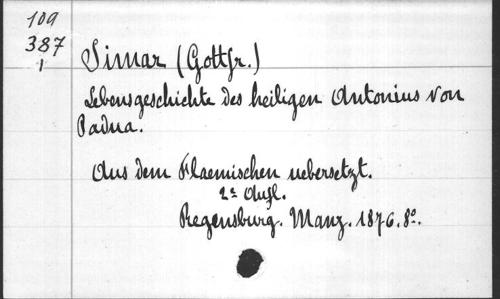 109
387
1
Simar (Gottfr.)
Lebensgeschichte des heiligen Antonius von
Padua.
Aus dem Flaemischen uebersetzt.
2e Aufl.
Regensburg. Manz. 1876. 8o.